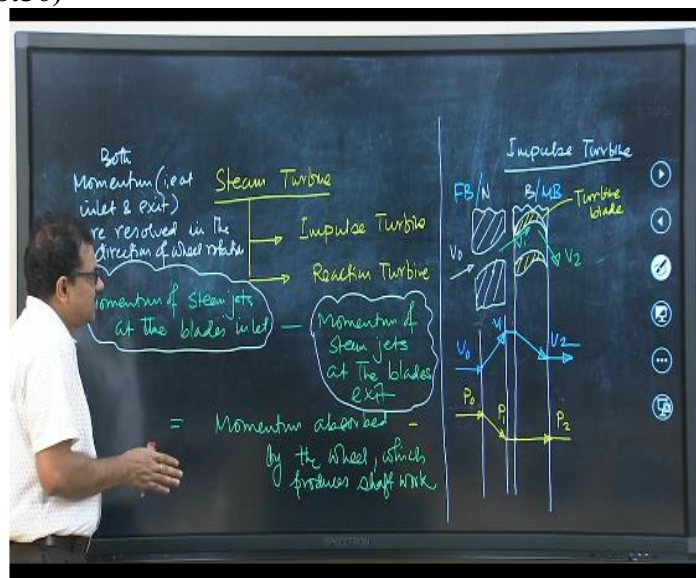 Both
Momentum (i.e at
inlet & exit)
re resolved in the
direction of wheel rotation
Steam Turbine
Impulse Turbine
Reaction Turbine
omentum of Steam jets
at the blades inlet
—
Momentum of
Steam jets
at The blades
exit
= Momentum absorbed
by the wheel, which
produces shaft work
Impulse Turbine
FB/N
B/MB
Turbine
blade
V0
V1
V2
V0
V1
V2
P0
P1
P2